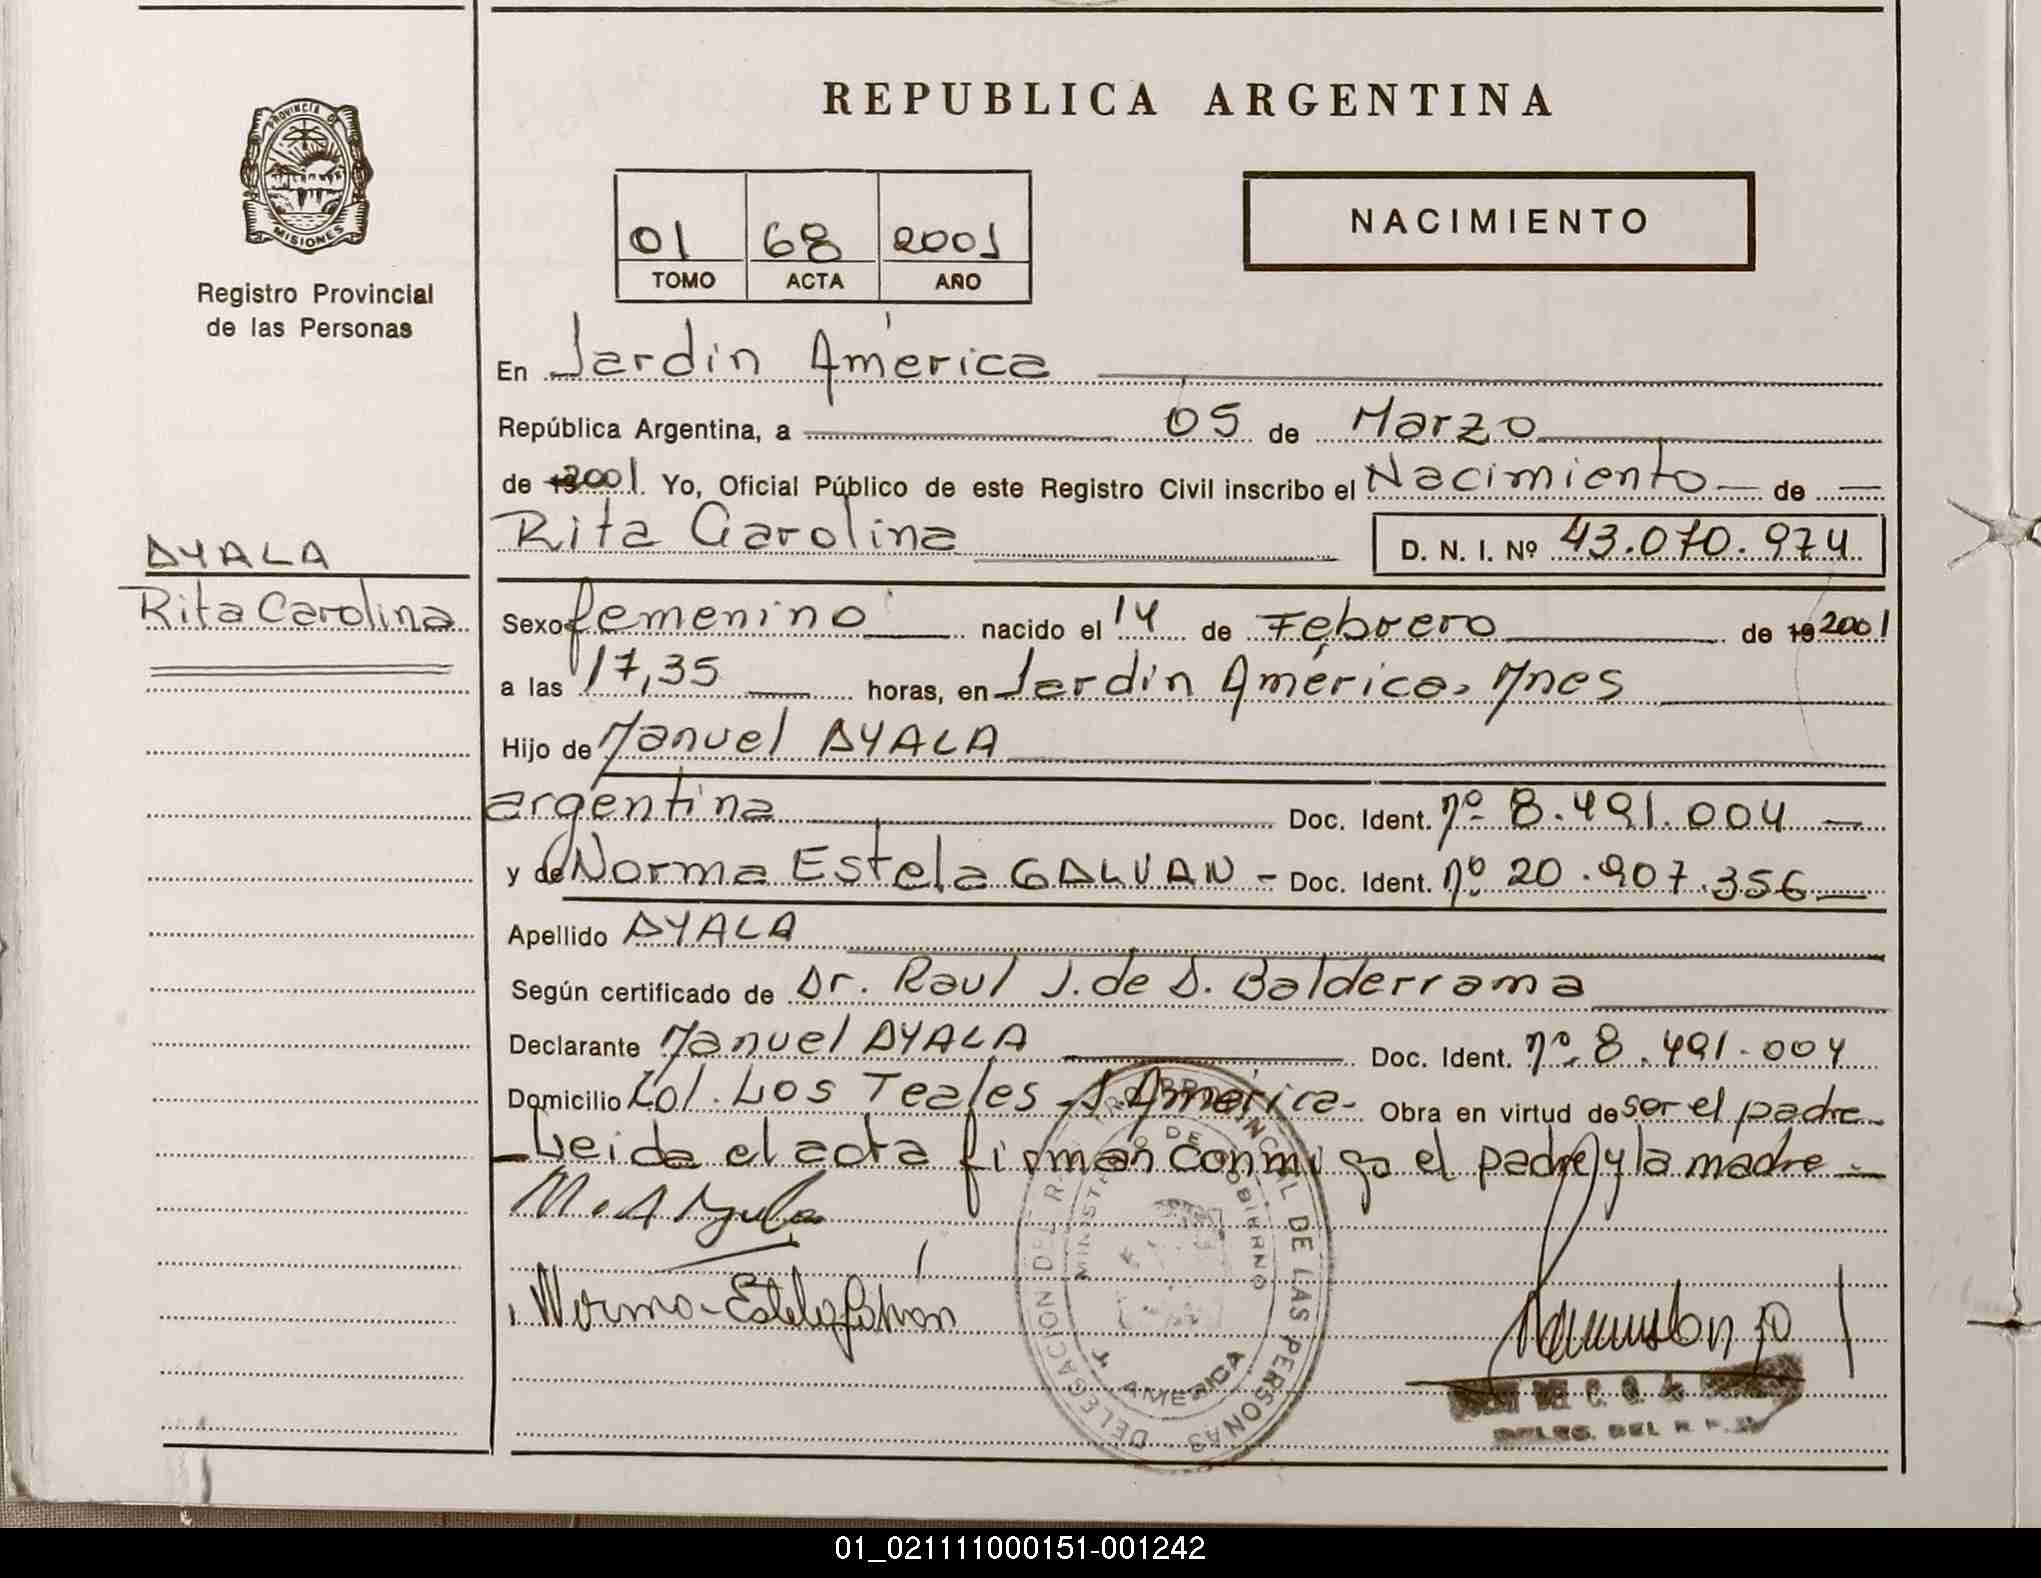 REPUBLICA ARGENTINA
PROVINCIA DE
MISIONES
Registro Provincial
de las Personas
01 68 2001
TOMO ACTA AÑO
NACIMIENTO
En Jardín América
República Argentina, a 05 de Marzo
de 2001. Yo, Oficial Público de este Registro Civil inscribo el Nacimiento de
Rita Carolina D. N. I. Nº 43.070.974
AYALA
Rita Carolina
Sexo femenino nacido el 14 de Febrero de 19 2001
a las 17,35 horas, en Jardín América, Mnes
Hijo de Manuel AYALA
argentina Doc. Ident. nº 8.491.004
y de Norma Estela GALVAN - Doc. Ident. nº 20.907.356
Apellido AYALA
Según certificado de Dr. Raul J. de D. Balderrama
Declarante Manuel AYALA Doc. Ident. nº 8.491.004
Domicilio Col. Los Teales - J. América - Obra en virtud de ser el padre
- Leida el acta firman conmigo el padre y la madre -
M. A Ayala
Norma Estela Galván
DELEGACION DEL R. PROVINCIAL DE LAS PERSONAS
MINISTERIO DE GOBIERNO
J. AMERICA
DELEG. DEL R. P.
01_021111000151-001242